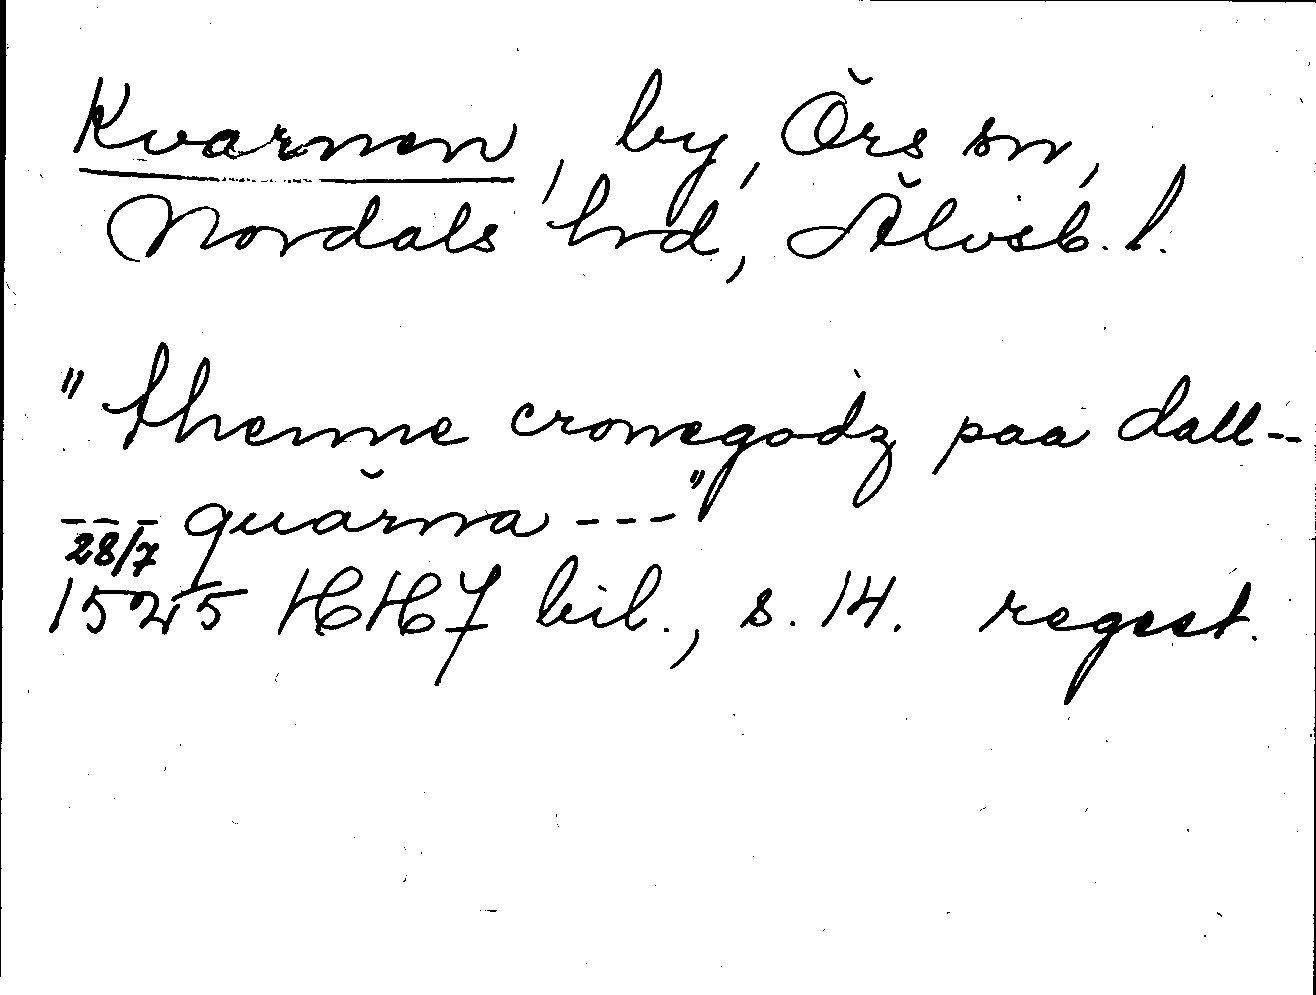 Kvarnen, by, Örs sn,
Nordals hrd, Älvsb. l.
"thenne cronegodz paa dall--
--- quärna ---"
28/7
1525 HH 7 bil., s. 14. regest.